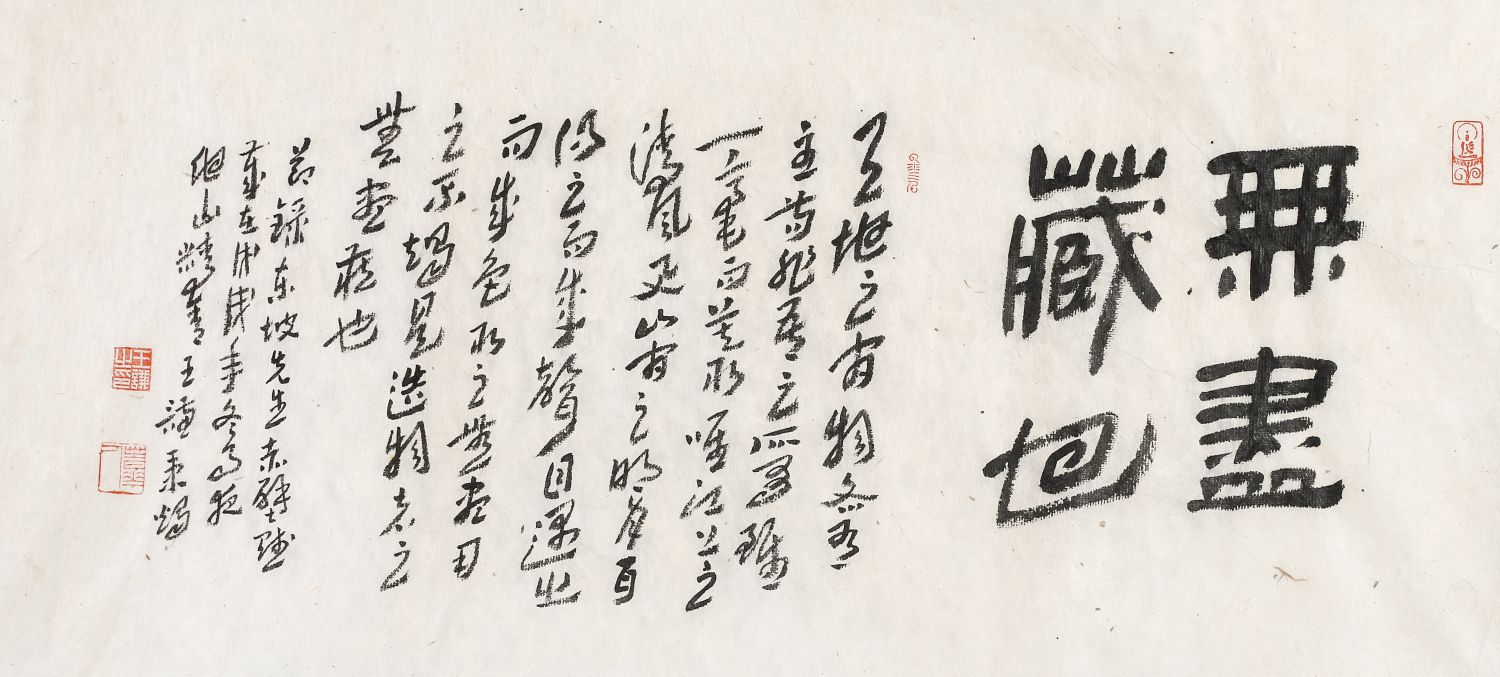 無盡
藏也
天地之間物各有
主苟非吾之所有雖
一毫而莫取唯江上之
清風與山間之明月耳
得之而成聲目遇之
而成色取之無盡用
之不竭是造物者之
無盡藏也
節錄東坡先生赤壁賦
歲在戊戌年冬夜
山王謙秉燭
王謙之印